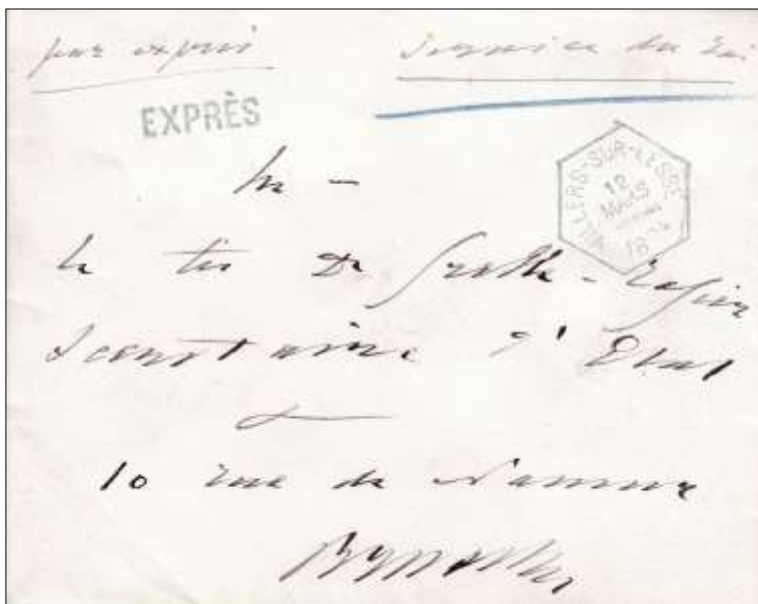 par exprès
Service du Roi
EXPRÈS
VILLERS-SUR-LESSE
12
MARS
Mr -
le Cte De Grelle - Rogier
Secrétaire d'Etat
10 rue de Namur
Bruxelles